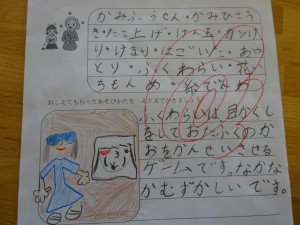 かみふうせん・かみひこう
き・たこ上げ・はん玉・カンけ
り・けまり・はごいた・あや
とり・ふくわらい・花い
ちもんめ・絵であわ
おしえてもらったあそびかたを 絵と文でかきましょう
ふくわらいは、目かくし
をしておたふくのか
おをかんせいさせる
ゲームです。なかなか
むずかしいです。